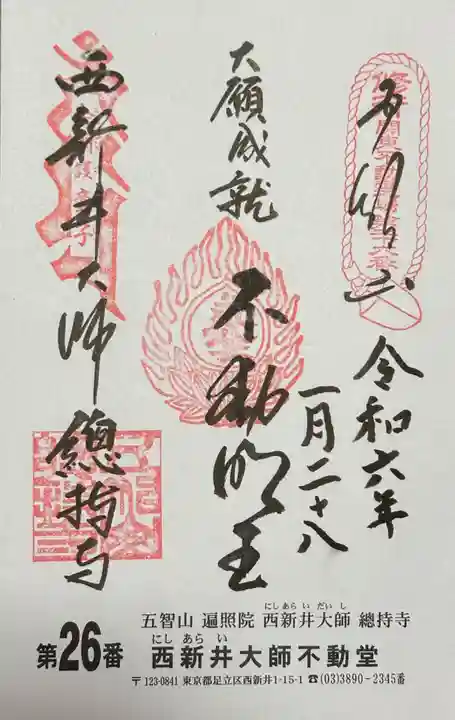 五智山
令和六年
一月二十八
大願成就
不動明王
西新井大師總持寺
五智山 遍照院 西新井大師 總持寺
にしあらいだいし
第26番 西新井大師不動堂
にしあらい
〒123-0841 東京都足立区西新井1-15-1 ☎(03)3890-2345番